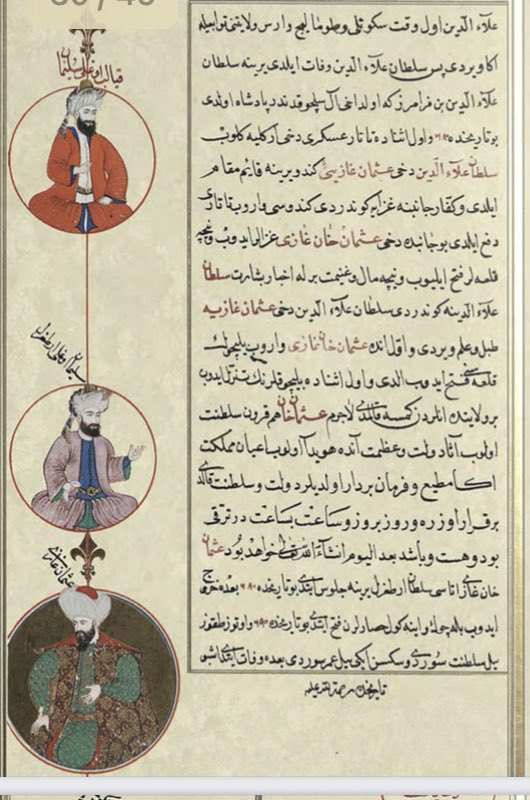 علاء الدین اول وقت سکوتلی وطومالیج وارس ولایتنی قوابیله
اکا ویردی پس سلطان علاء الدین وفات ایلدی یرینه سلطان
علاء الدین بن فرامرز که اولداخی آل سلجوقدندر پادشاه اولدی
بو تاریخده ٦٨٥ واول اثناده تاتار عسکری دخی آرکلیه کلوب
سلطان علاء الدین دخی عثمان غازیی کندو یرینه قایم مقام
ایلدی وکفار جانبنه غزایه کوندردی کندوسی واروب تاتاری
دفع ایلدی بو جانبده دخی عثمان خان غازی غزالر ایدوب ونیجه
قلعه لر فتح ایلیوب ونیجه مال وغنیمت برله اخبار بشارت سلطان
علاء الدینه کوندردی سلطان علاء الدین دخی عثمان غازیه
طبل وعلم ویردی واول انده عثمان خان غازی واروب بیلجوک
قلعه سن فتح ایدوب الدی واول اثناده
بر ولایتده انلردن کمسه قالمدی لاجرم عثمان خان هم قرون سلطنت
اولوب آثار دولت وعظمت آنده هویدا اولوب اعیان مملکت
اکا مطیع وفرمان بردار اولدیلر دولت وسلطنت
برقرار اوزره وروز بروز وساعت بساعت در ترقی
بود وهست وباشد بعد الیوم انشاء الله تعالی خواهد بود عثمان
خان غازی اتاسی سلطان ارطغرل یرینه جلوس ایتدی بو تاریخده ٦٨٠ بعده
ایدوب واینه کول حصارلرن فتح ایتدی بو تاریخده ٦٩٥ واوتوز طقوز
ییل سلطنت سوردی وسکسن ایکی ییل عمر سوردی بعده وفات ایتدی
تاریخنده رحمة الله علیه
سلیمان
ارطغرل
عثمان غازی